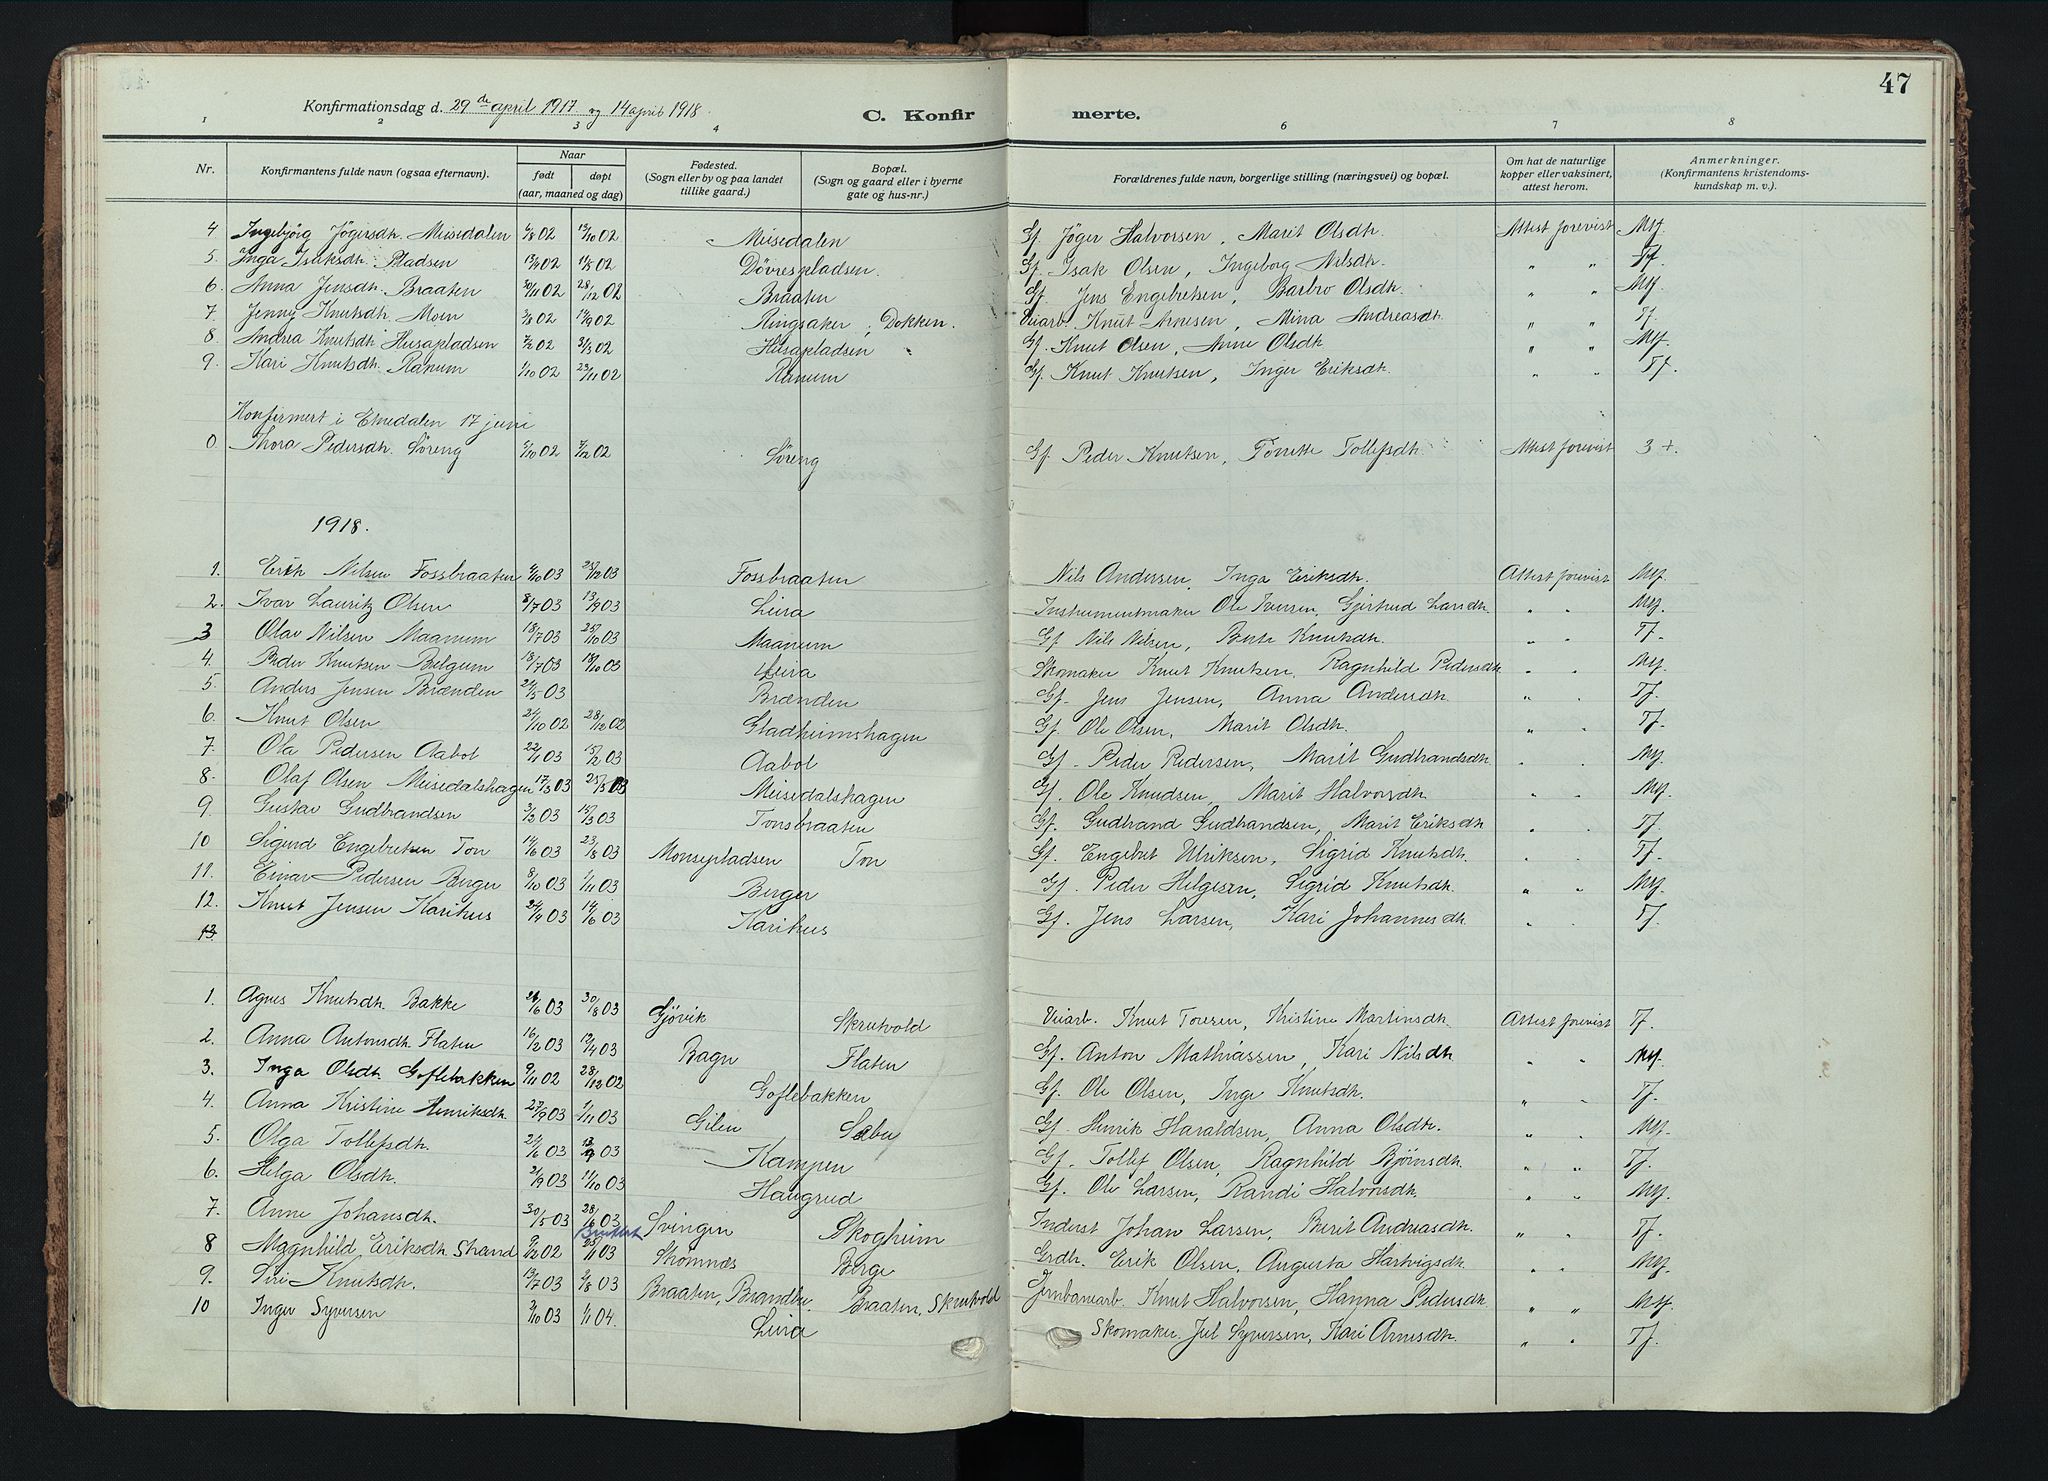 47
Konfirmationsdag d. 29de april 1917 og 14 april 1918. C. Konfirmerte.
1 2 3 4 6 7 8
Nr. Konfirmantens fulde navn (ogsaa efternavn). Naar født døpt (aar, maaned og dag) Fødested. (Sogn eller by og paa landet tillike gaard.) Bopæl. (Sogn og gaard eller i byerne gate og hus-nr.) Forældrenes fulde navn, borgerlige stilling (næringsvei) og bopæl. Om hat de naturlige kopper eller vaksinert, attest herom. Anmerkninger. (Konfirmantens kristendoms-kundskap m. v.).
4 Ingebjörg Jögersdh. Meisedalen /8 02 13/10 02 Meisedalen Gf. Jöger Halvorsen, Marit Olsdh. Attest forevist Mtf.
5. Inga Isaksdh. Pladsen 13/4 02 11/5 02 Dövrespladsen. Gf. Isak Olsen, Ingeborg Nilsdh. " " Tf.
6. Anna Jensdh. Braaten 30/11 02 28/12 02 Braaten Gf. Jens Engebretsen, Barbro Olsdh. " " Mtf.
7 Jenny Knutsdh. Moen 3/8 02 14/9 02 Ringsaker, Dokken. Veiarb. Knut Arnesen, Mina Andreasdh. " " Tf.
8 Andrea Knutsdh Husapladsen 7/2 02 31/3 02 Husapladsen Gf. Knut Olsen, Anne Olsdh " " Mtf.
9. Kari Knutsdh. Ranum 1/10 02 23/11 02 Ranum Gf. Knut Knutsen, Inger Eriksdh. " " Tf.
Konfirmert i Etnedalen 17 juni
0 Thora Pedersdh. Söreng /10 02 7/12 02 Söreng Gf. Peder Knutsen, Tonette Tollefsdh. Attest forevist 3+.
1918.
1. Erik Nilsen Fossbraaten /10 03 25/12 03 Fossbraaten Nils Andersen, Inga Eriksdh. Attest forevist Mtf.
2. Ivar Lauritz Olsen 8/7 03 13/9 03 Leira Instrumentmaker Ole Iversen, Gjertrud Larsdh. " " Mtf.
3 Olav Nilsen Maanum 18/7 03 25/10 03 Maanum Gf. Nils Nilsen, Berte Knutsdh. " " Tf.
4. Peder Knutsen Belgum 18/7 03 18/10 03 Leira Skomaker Knut Knutsen, Ragnhild Pedersdh " " Mtf.
5. Anders Jensen Brænden 24/5 03 Brænden Gf. Jens Jensen, Anna Andersdh. " " Tf.
6. Knut Olsen 24/10 02 28/12 02 Gladheimshagen Gf. Ole Olsen, Marit Olsdh. " " Tf.
7. Ola Pedersen Aabol 22/1 03 15/2 03 Aabol Gf. Peder Pedersen, Marit Gudbrandsdh. " " Mtf.
8. Olaf Olsen Meisedalshagen 17/3 03 25/5 03 Meisedalshagen Gf. Ole Knudsen, Marit Halvorsdh " " Mtf.
9 Gustav Gudbrandsen 3/2 03 15/3 03 Tonsbraaten Gf. Gudbrand Gudbrandsen, Marit Eriksdh " " Tf.
10 Sigurd Engebretsen Ton 14/6 03 23/8 03 Monsepladsen Ton Gf. Engebret Ulriksen, Sigrid Knutsdh. " " Tf.
11. Einar Pedersen Berger 8/10 03 1/11 03 Berger Gf. Peder Helgesen, Sigrid Knutsdh. " " Mtf.
12. Knut Jensen Karihus 24/4 03 14/6 03 Karihus Gf. Jens Larsen, Kari Johannesdh. " " Tf.
13.
1. Agnes Knutsdh. Bakke /6 03 30/8 03 Gjövik Skrutvold Veiarb. Knut Toresen, Kristine Martinsdh. Attest forevist Tf.
2. Anna Antonsdh. Flaten 16/2 03 12/4 03 Bagn Flaten Gf. Anton Mathiassen, Kari Nilsdh " " Mtf.
3. Inga Olsdh. Goflebakken 9/11 02 28/12 02 Goflebakken Gf. Ole Olsen, Inge Knutsdh. " " Tf.
4. Anna Kristine Henriksdh. 27/9 03 1/11 03 Gilen Sebu Gf. Henrik Haraldsen, Anna Olsdh. " " Mtf.
5. Olga Tollefsdh. 24/6 03 03 Kampen Gf. Tollef Olsen, Ragnhild Björnsdh. " " Tf.
6. Helga Olsdh. 3/9 03 11/10 03 Haugrud Gf. Ole Larsen, Randi Halvorsdh. " " Mtf.
7. Anne Johansdh. 30/5 03 28/6 03 Svingen Skogheim Inderst Johan Larsen, Berit Andreasdh. " " Tf.
8 Magnhild Eriksdh. Strand 9/12 02 25/1 03 Strömnæs Berge Grdb. Erik Olsen, Augusta Hartvigsdh. " " Mtf.
9. Siri Knutsdh. 13/7 03 /8 03 Braaten, Brandbu. Braaten, Skrutvold Jernbanearb. Knut Halvorsen, Hanna Pedersdh. " " Mtf.
10 Inger Syversen 3/10 03 1/1 04. Leira Skomaker. Jul Syversen, Kari Arnesdh. " " Tf.